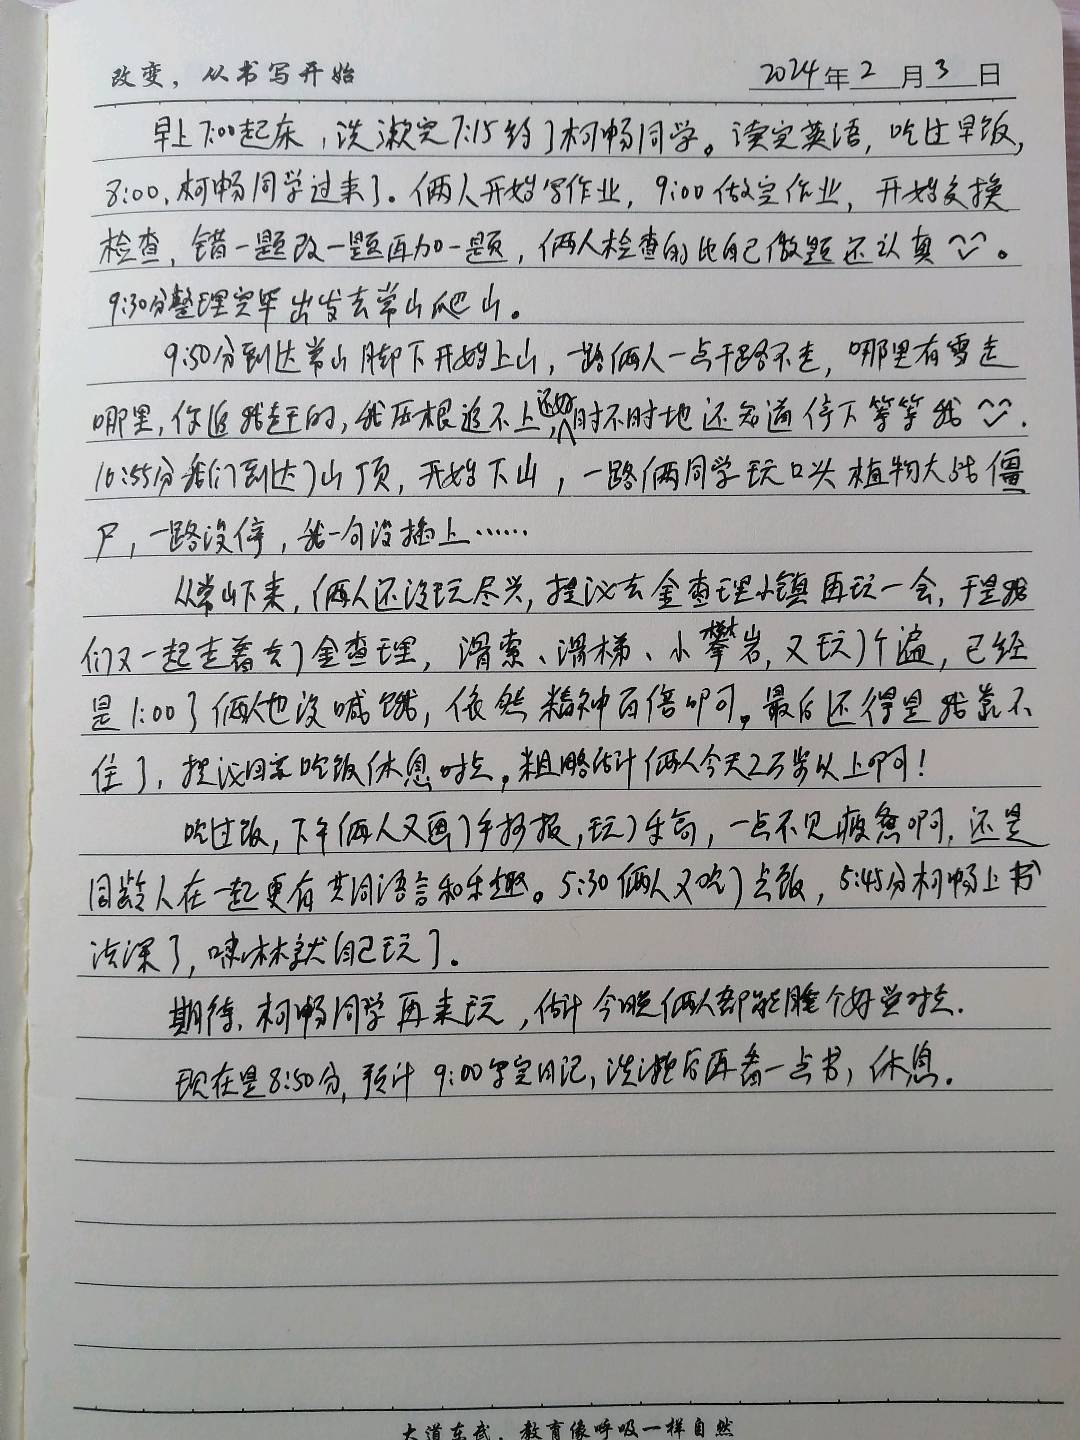 改变，从书写开始
2024年2月3日
早上7:00起床，洗漱完7:15约了柯畅同学。读完英语，吃过早饭，
8:00，柯畅同学过来了。俩人开始写作业，9:00做完作业，开始交换
检查，错一题改一题再加一题，俩人检查的比自己做题还认真。
9:30分整理完毕出发去常山爬山。
9:50分到达常山脚下开始上山，一路俩人一点干路不走，哪里有雪走
哪里，你追我赶的，我压根追不上，还好时不时地还知道停下等等我.
10:55分我们到达了山顶，开始下山，一路俩同学玩口头植物大战僵
尸，一路没停，我一句没插上……
从常山下来，俩人还没玩尽兴，提议去金查理小镇再玩一会，于是我
们又一起走着去了金查理，滑索、滑梯、小攀岩，又玩了个遍，已经
是1:00了俩人也没喊饿，依然精神百倍啊，最后还得是我靠不
住了，提议回家吃饭休息时点，粗略估计俩人今天2万步以上啊！
吃过饭，下午俩人又画了手抄报，玩了乐高，一点不见疲惫啊，还是
同龄人在一起更有共同语言和乐趣。5:30俩人又吃了点饭，5:45分柯畅上书
法课了，林就自己玩了。
期待，柯畅同学再来玩，估计今晚俩人都能睡个好觉时点.
现在是8:50分，预计9:00写完日记，洗漱后再看一点书，休息.
大道东武，教育像呼吸一样自然